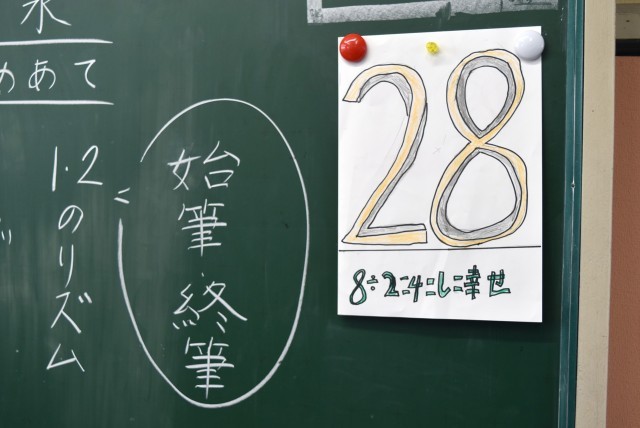 28
8÷2=4=し=幸せ
始筆 終筆
=
1・2のリズム
めあて